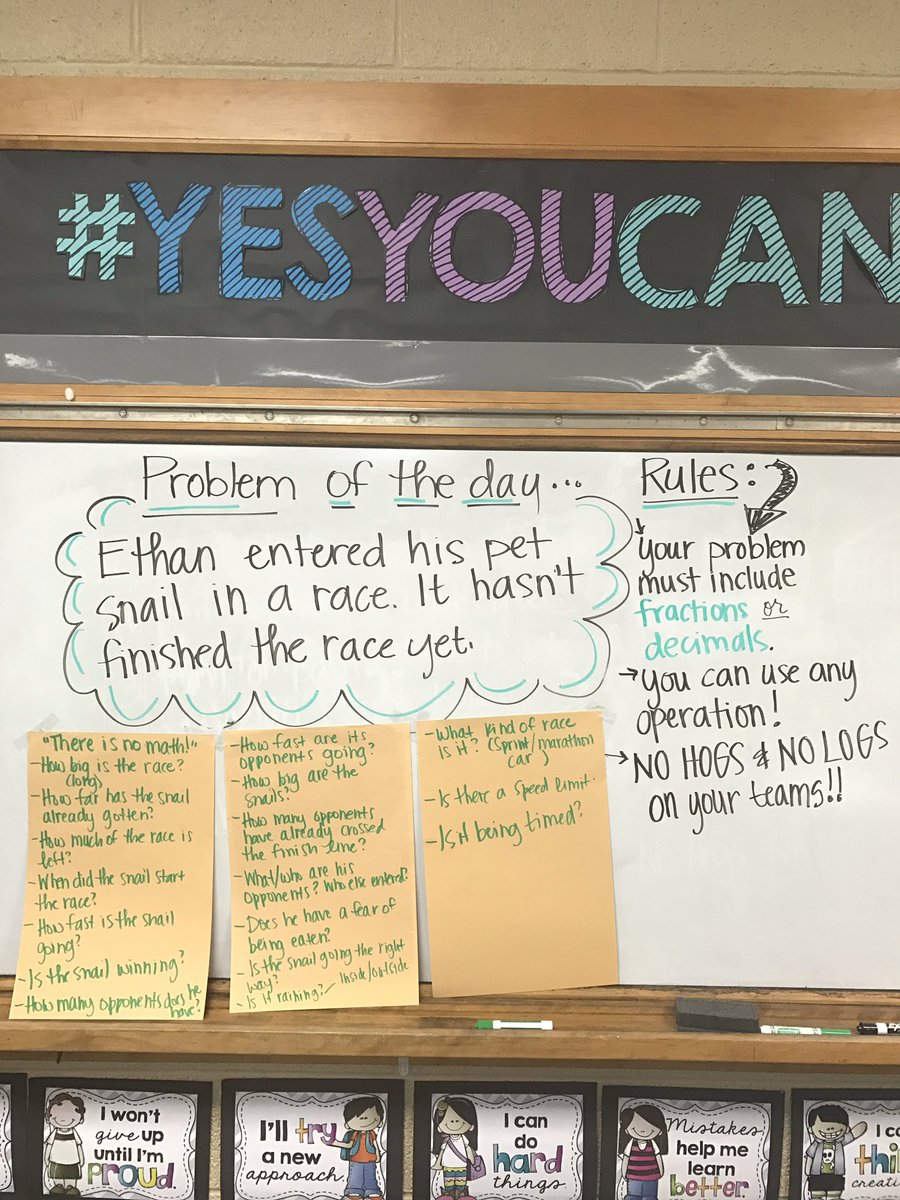 #YESYOUCAN
Problem of the day...
Ethan entered his pet
snail in a race. It hasn't
finished the race yet.
Rules:
your problem
must include
fractions or
decimals.
→you can use any
operation!
→NO HOGS & NO LOGS
on your teams!!
"There is no math!"
-How big is the race?
(long)
-How far has the snail
already gotten?
-How much of the race is
left?
-When did the snail start
the race?
-How fast is the snail
going?
-Is the snail winning?
-How many opponents does he
have?
-How fast are its
opponents going?
-How big are the
snails?
-How many opponents
have already crossed
the finish line?
-What/who are his
opponents? Who else entered?
-Does he have a fear of
being eaten?
-Is the snail going the right
way?
-Is it raining?/ inside/outside
-What kind of race
is it? (sprint/marathon
car)
-Is there a speed limit.
-Is it being timed?
I won't
give up
until I'm
proud.
I'll try
a new
approach.
I can
do
hard
things.
Mistakes
help me
learn
better